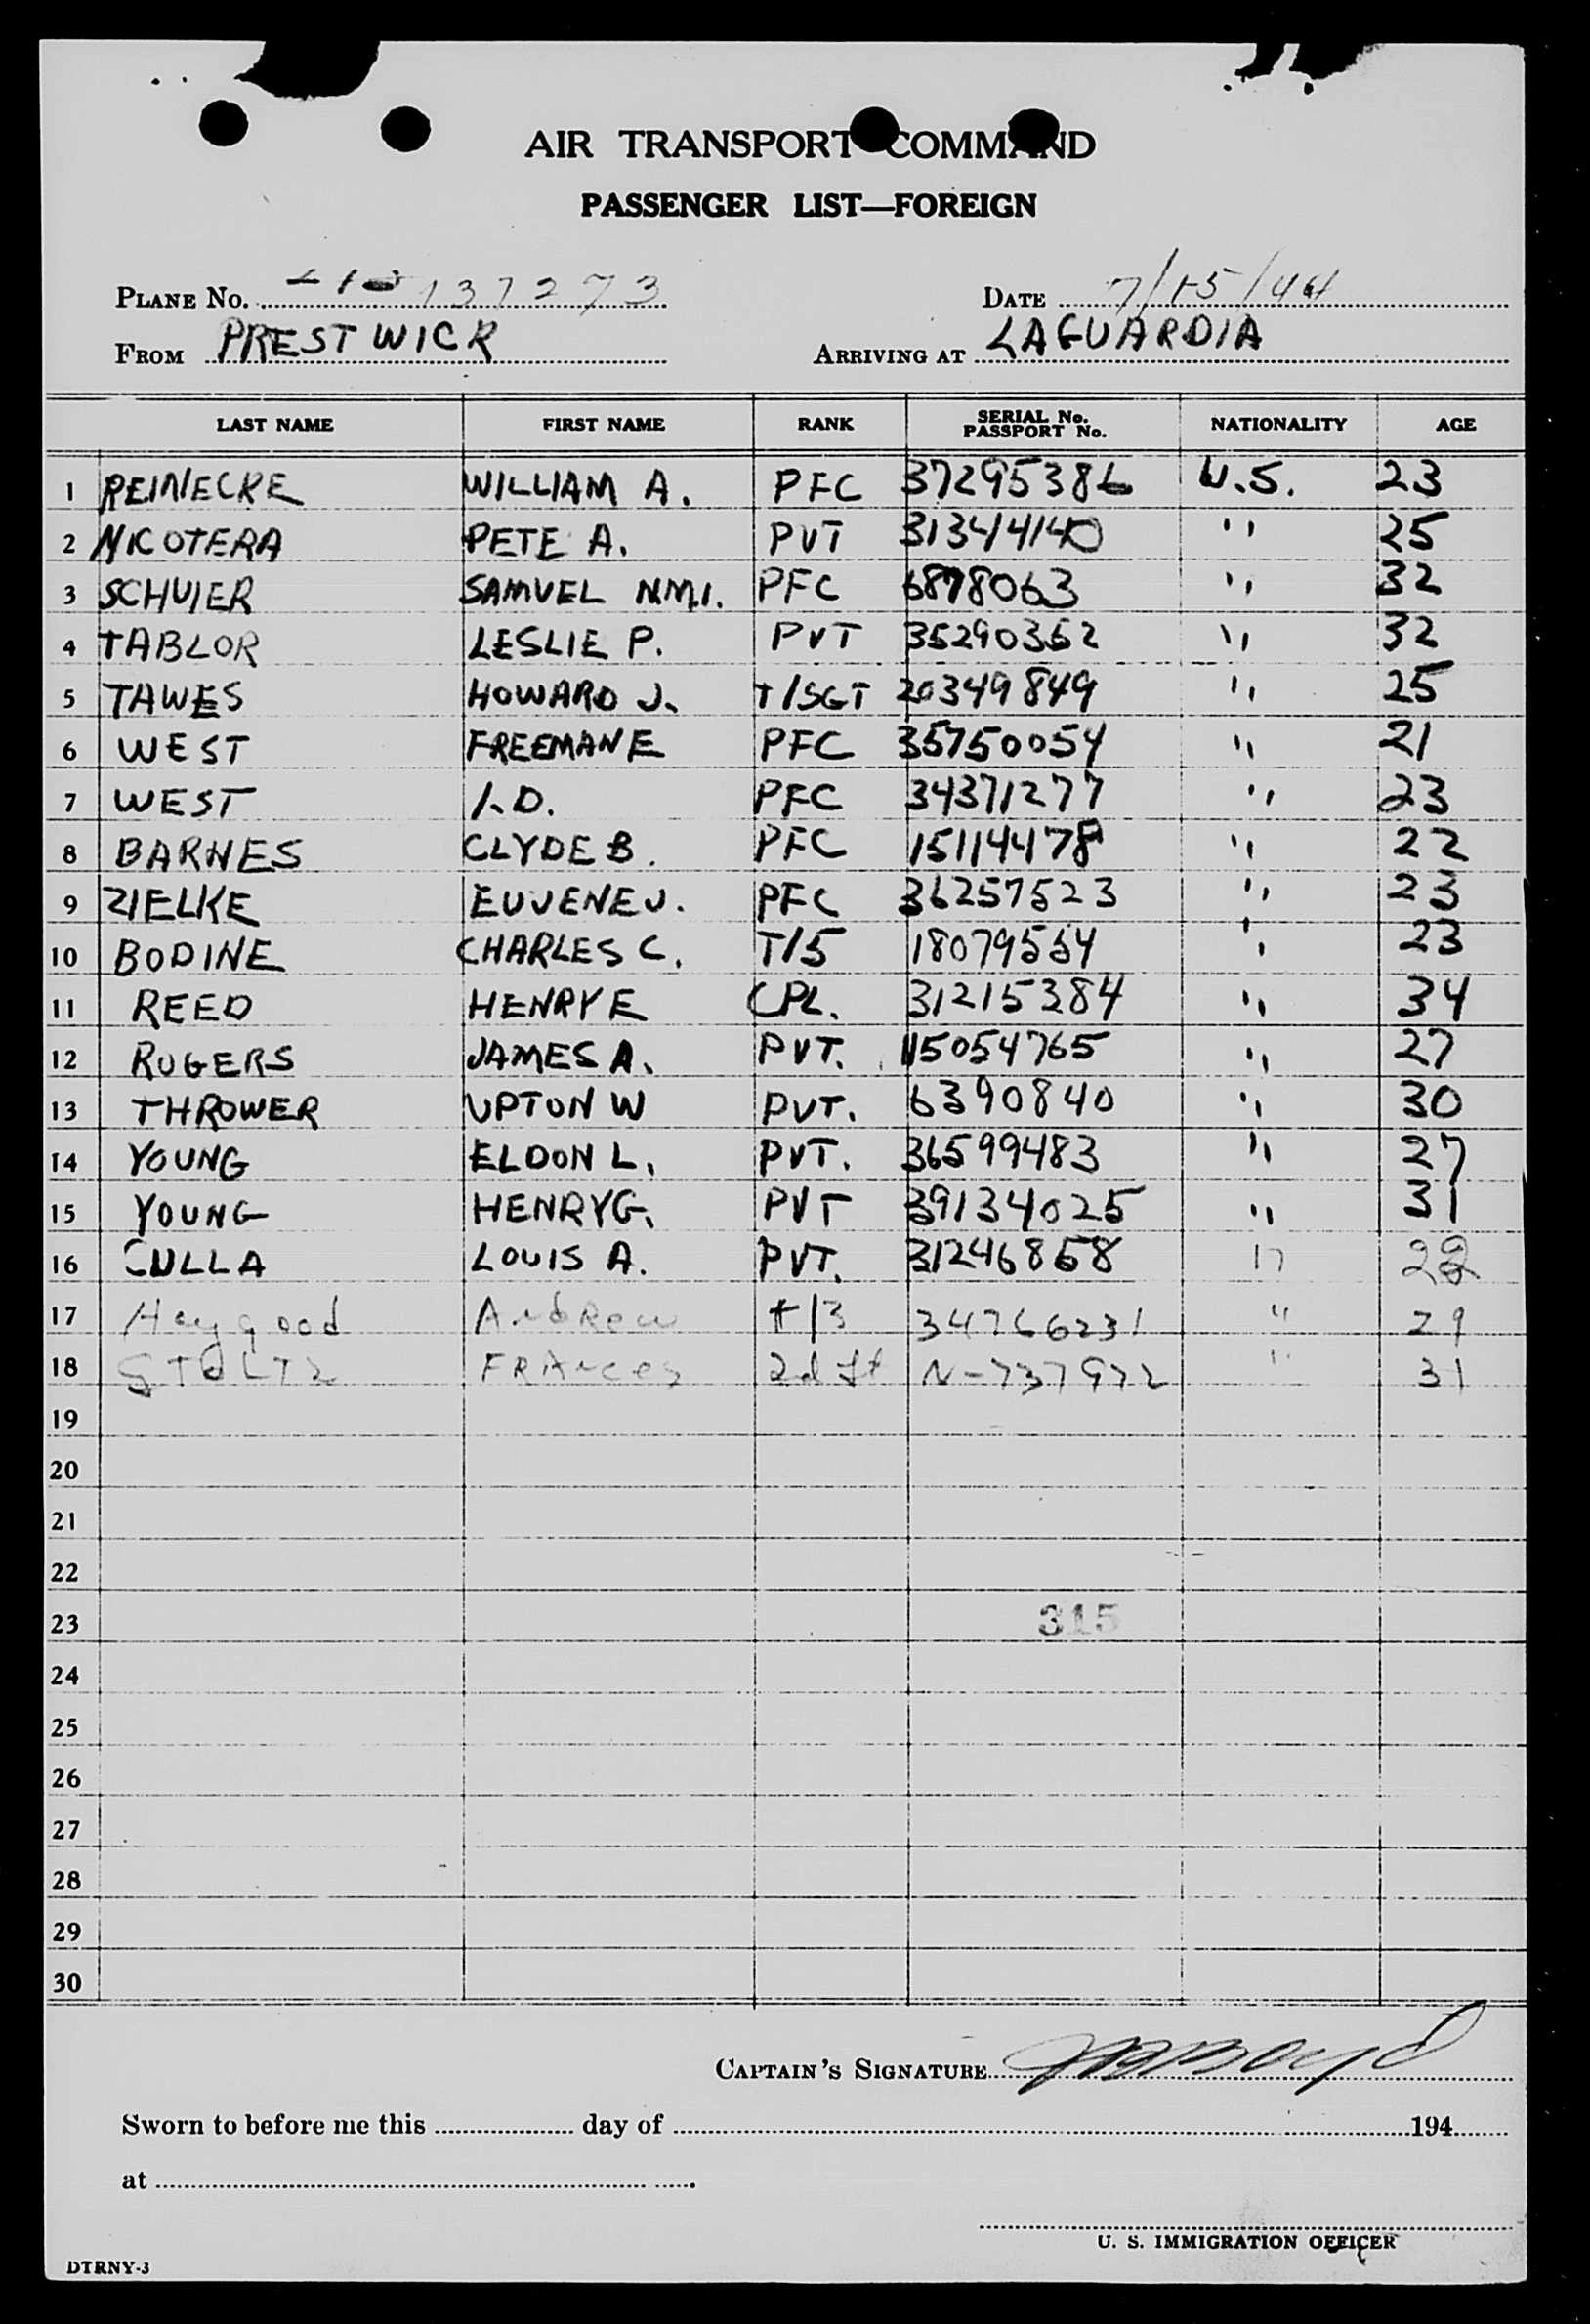 AIR TRANSPORT COMMAND
PASSENGER LIST—FOREIGN
PLANE No. 137273 DATE 7/15/44
FROM PRESTWICK ARRIVING AT LAGUARDIA
LAST NAME FIRST NAME RANK SERIAL No. PASSPORT No. NATIONALITY AGE
1 REINECKE WILLIAM A. PFC 37295386 U.S. 23
2 NICOTERA PETE A. PVT 31344140 " 25
3 SCHUIER SAMUEL N.M.I. PFC 6878063 " 32
4 TABLOR LESLIE P. PVT 35290352 " 32
5 TAWES HOWARD J. T/SGT 20349849 " 25
6 WEST FREEMAN E PFC 35750054 " 21
7 WEST I.D. PFC 34371277 " 23
8 BARNES CLYDE B. PFC 15114478 " 22
9 ZIELKE EUJENE J. PFC 36257523 " 23
10 BODINE CHARLES C. T/5 18079554 " 23
11 REED HENRY E CPL. 31215384 " 34
12 ROGERS JAMES A. PVT. 15054765 " 27
13 THROWER UPTON W PVT. 6390840 " 30
14 YOUNG ELDON L. PVT. 36599483 " 27
15 YOUNG HENRY G. PVT 39134025 " 31
16 CULLA LOUIS A. PVT. 31246858 " 22
17 Haygood Andrew t/3 34766231 " 29
18 STOLTZ FRANCES 2d Lt N-737972 " 31
19
20
21
22
23 315
24
25
26
27
28
29
30
CAPTAIN'S SIGNATURE Boyd
Sworn to before me this day of 194
at
U. S. IMMIGRATION OFFICER
DTRNY-3